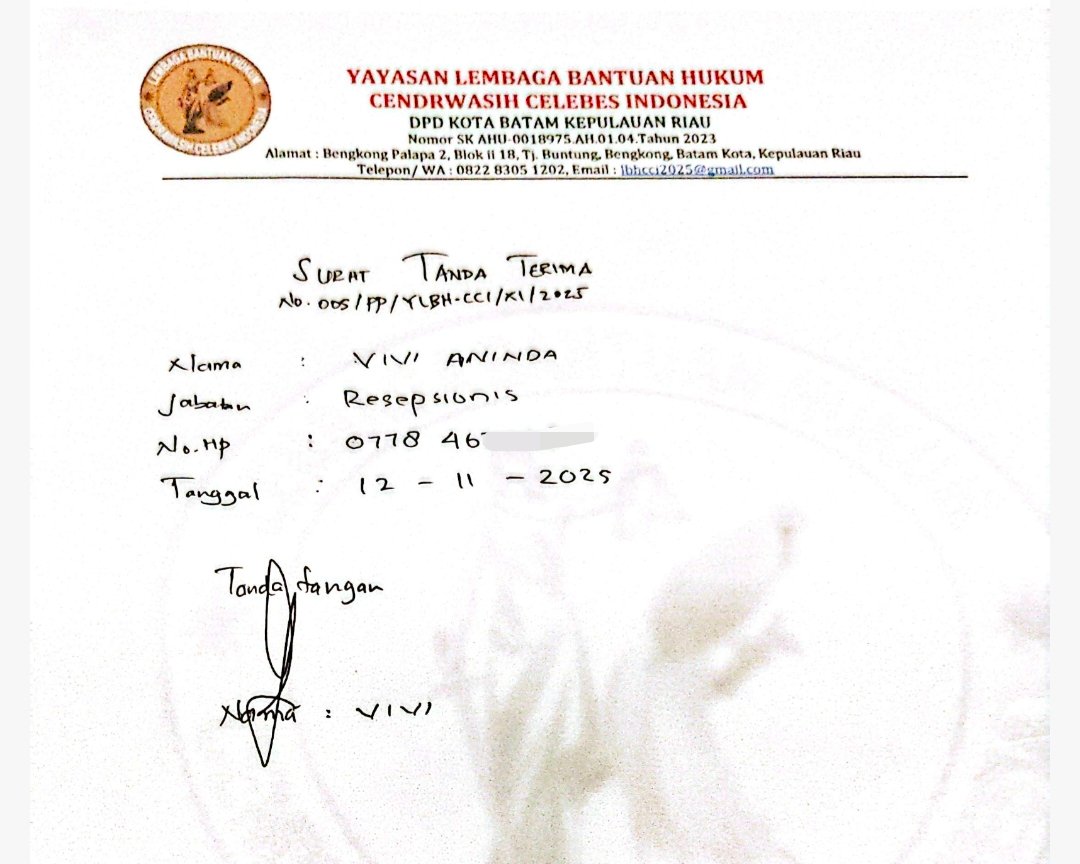 LEMBAGA BANTUAN HUKUM
YAYASAN LEMBAGA BANTUAN HUKUM
CENDRWASIH CELEBES INDONESIA
DPD KOTA BATAM KEPULAUAN RIAU
Nomor SK AHU-0018975.AH.01.04.Tahun 2023
Alamat : Bengkong Palapa 2, Blok ii 18, Tj. Buntung, Bengkong, Batam Kota, Kepulauan Riau
Telepon/ WA : 0822 8305 1202, Email : lbhcci2025@gmail.com
SURAT TANDA TERIMA
No. 005/PP/YLBH-CCI/XI/2025
Nama : VIVI ANINDA
Jabatan : Resepsionis
No. HP : 0778 46
Tanggal : 12 - 11 - 2025
Tanda tangan
Nama : VIVI